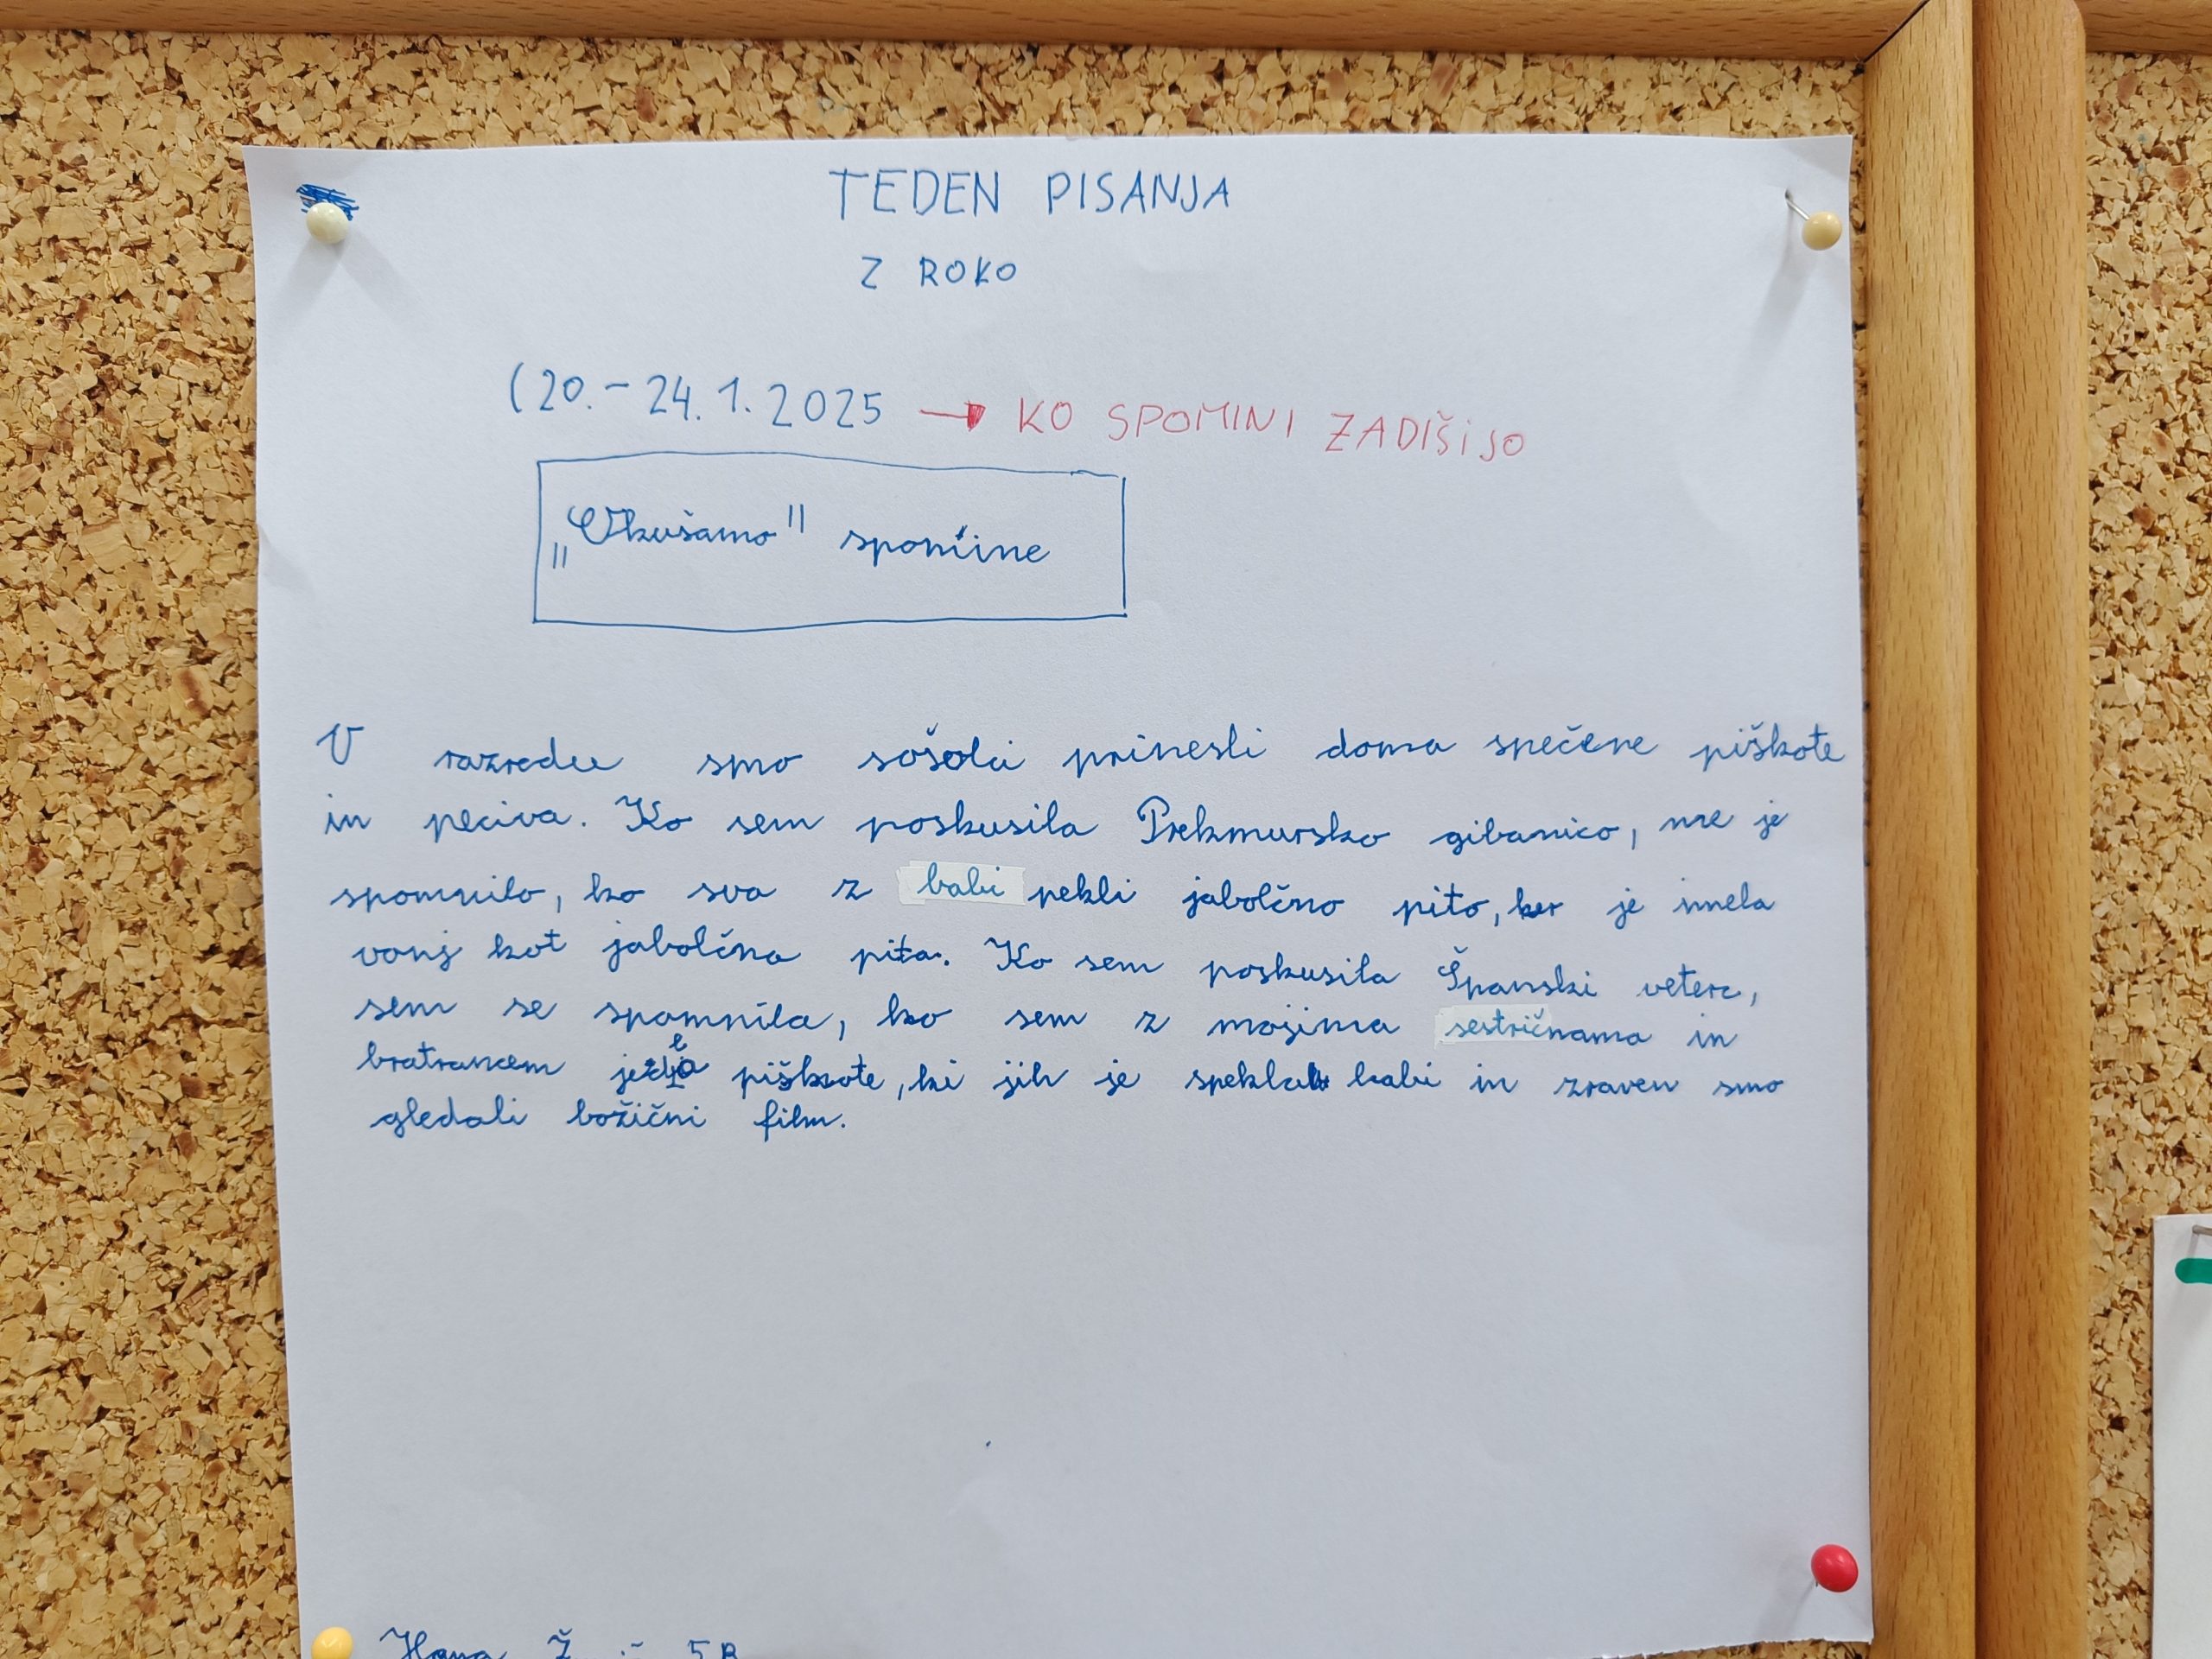 TEDEN PISANJA
Z ROKO
(20.-24.1.2025 → KO SPOMINI ZADIŠIJO
„Okušamo" spomine
V razredu smo sošolci prinesli doma spečene piškote
in peciva. Ko sem poskusila Prekmursko gibanico, me je
spomnilo, ko sva z babi pekli jabolčno pito, ker je imela
vonj kot jabolčna pita. Ko sem poskusila Španski veterc,
sem se spomnila, ko sem z mojima sestričnama in
bratrancem jedla piškote, ki jih je spekla babi in zraven smo
gledali božični film.
Hana Ž 5B